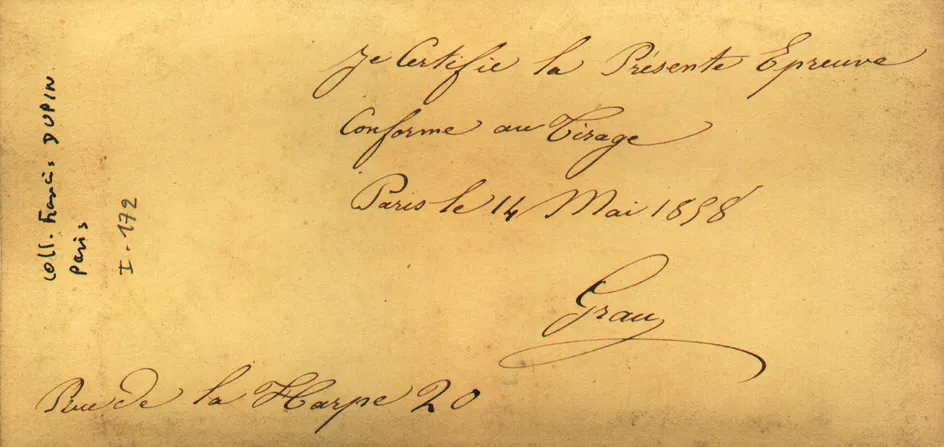 Je Certifie la Présente Epreuve
Conforme au Tirage
Paris le 14 Mai 1858
Grau
Rue de la Harpe 20
coll. Francis DUPIN
Paris
I-172